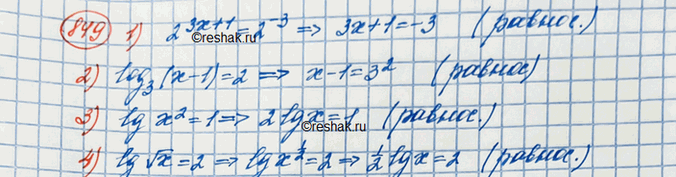 849 1) 2^{3x+1} = 2^{-3} => 3x+1 = -3 (равнос.)
©reshak.ru
2) log_3 (x-1) = 2 => x-1 = 3^2 (равнос)
3) lg x^2 = 1 => 2 lg x = 1 (равнос.)
©reshak.ru
4) lg √x = 2 => lg x^{1/2} = 2 => 1/2 lg x = 2 (равнос.)